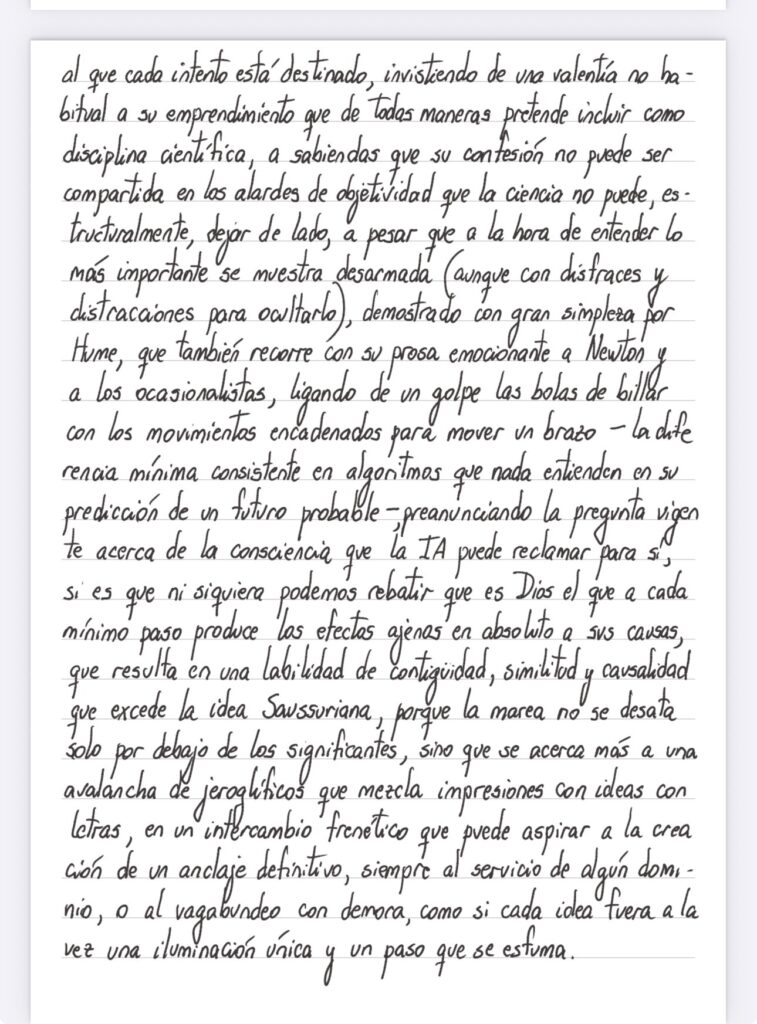 al que cada intento está destinado, invistiendo de una valentía no ha-
bitual a su emprendimiento que de todas maneras pretende incluir como
disciplina científica, a sabiendas que su confesión no puede ser
compartida en los alardes de objetividad que la ciencia no puede, es-
tructuralmente, dejar de lado, a pesar que a la hora de entender lo
más importante se muestra desarmada (aunque con disfraces y
distracciones para ocultarlo), demostrado con gran simpleza por
Hume, que también recorre con su prosa emocionante a Newton y
a los ocasionalistas, ligando de un golpe las bolas de billar
con los movimientos encadenados para mover un brazo – la dife
rencia mínima consistente en algoritmos que nada entienden en su
predicción de un futuro probable –, preanunciando la pregunta vigen
te acerca de la consciencia que la IA puede reclamar para sí,
si es que ni siquiera podemos rebatir que es Dios el que a cada
mínimo paso produce los efectos ajenos en absoluto a sus causas,
que resulta en una labilidad de contigüidad, similitud y causalidad
que excede la idea Saussuriana, porque la marea no se desata
solo por debajo de los significantes, sino que se acerca más a una
avalancha de jeroglíficos que mezcla impresiones con ideas con
letras, en un intercambio frenético que puede aspirar a la crea
ción de un anclaje definitivo, siempre al servicio de algún domi-
nio, o al vagabundeo con demora, como si cada idea fuera a la
vez una iluminación única y un paso que se esfuma.